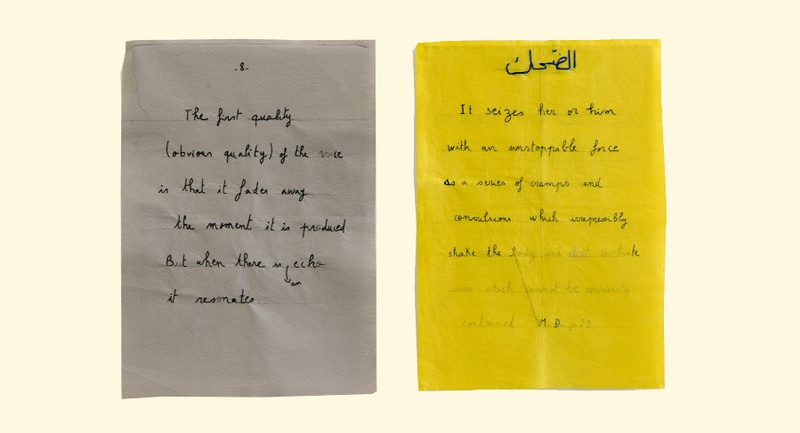 -8-
The first quality
(obvious quality) of the voice
is that it fades away
the moment it is produced
But when there is echo
an
it resonates
الضحك
It seizes her or him
with an unstoppable force
As a series of cramps and
convulsions which irrepressibly
shake the body and
which cannot be
contained M.D. p 29